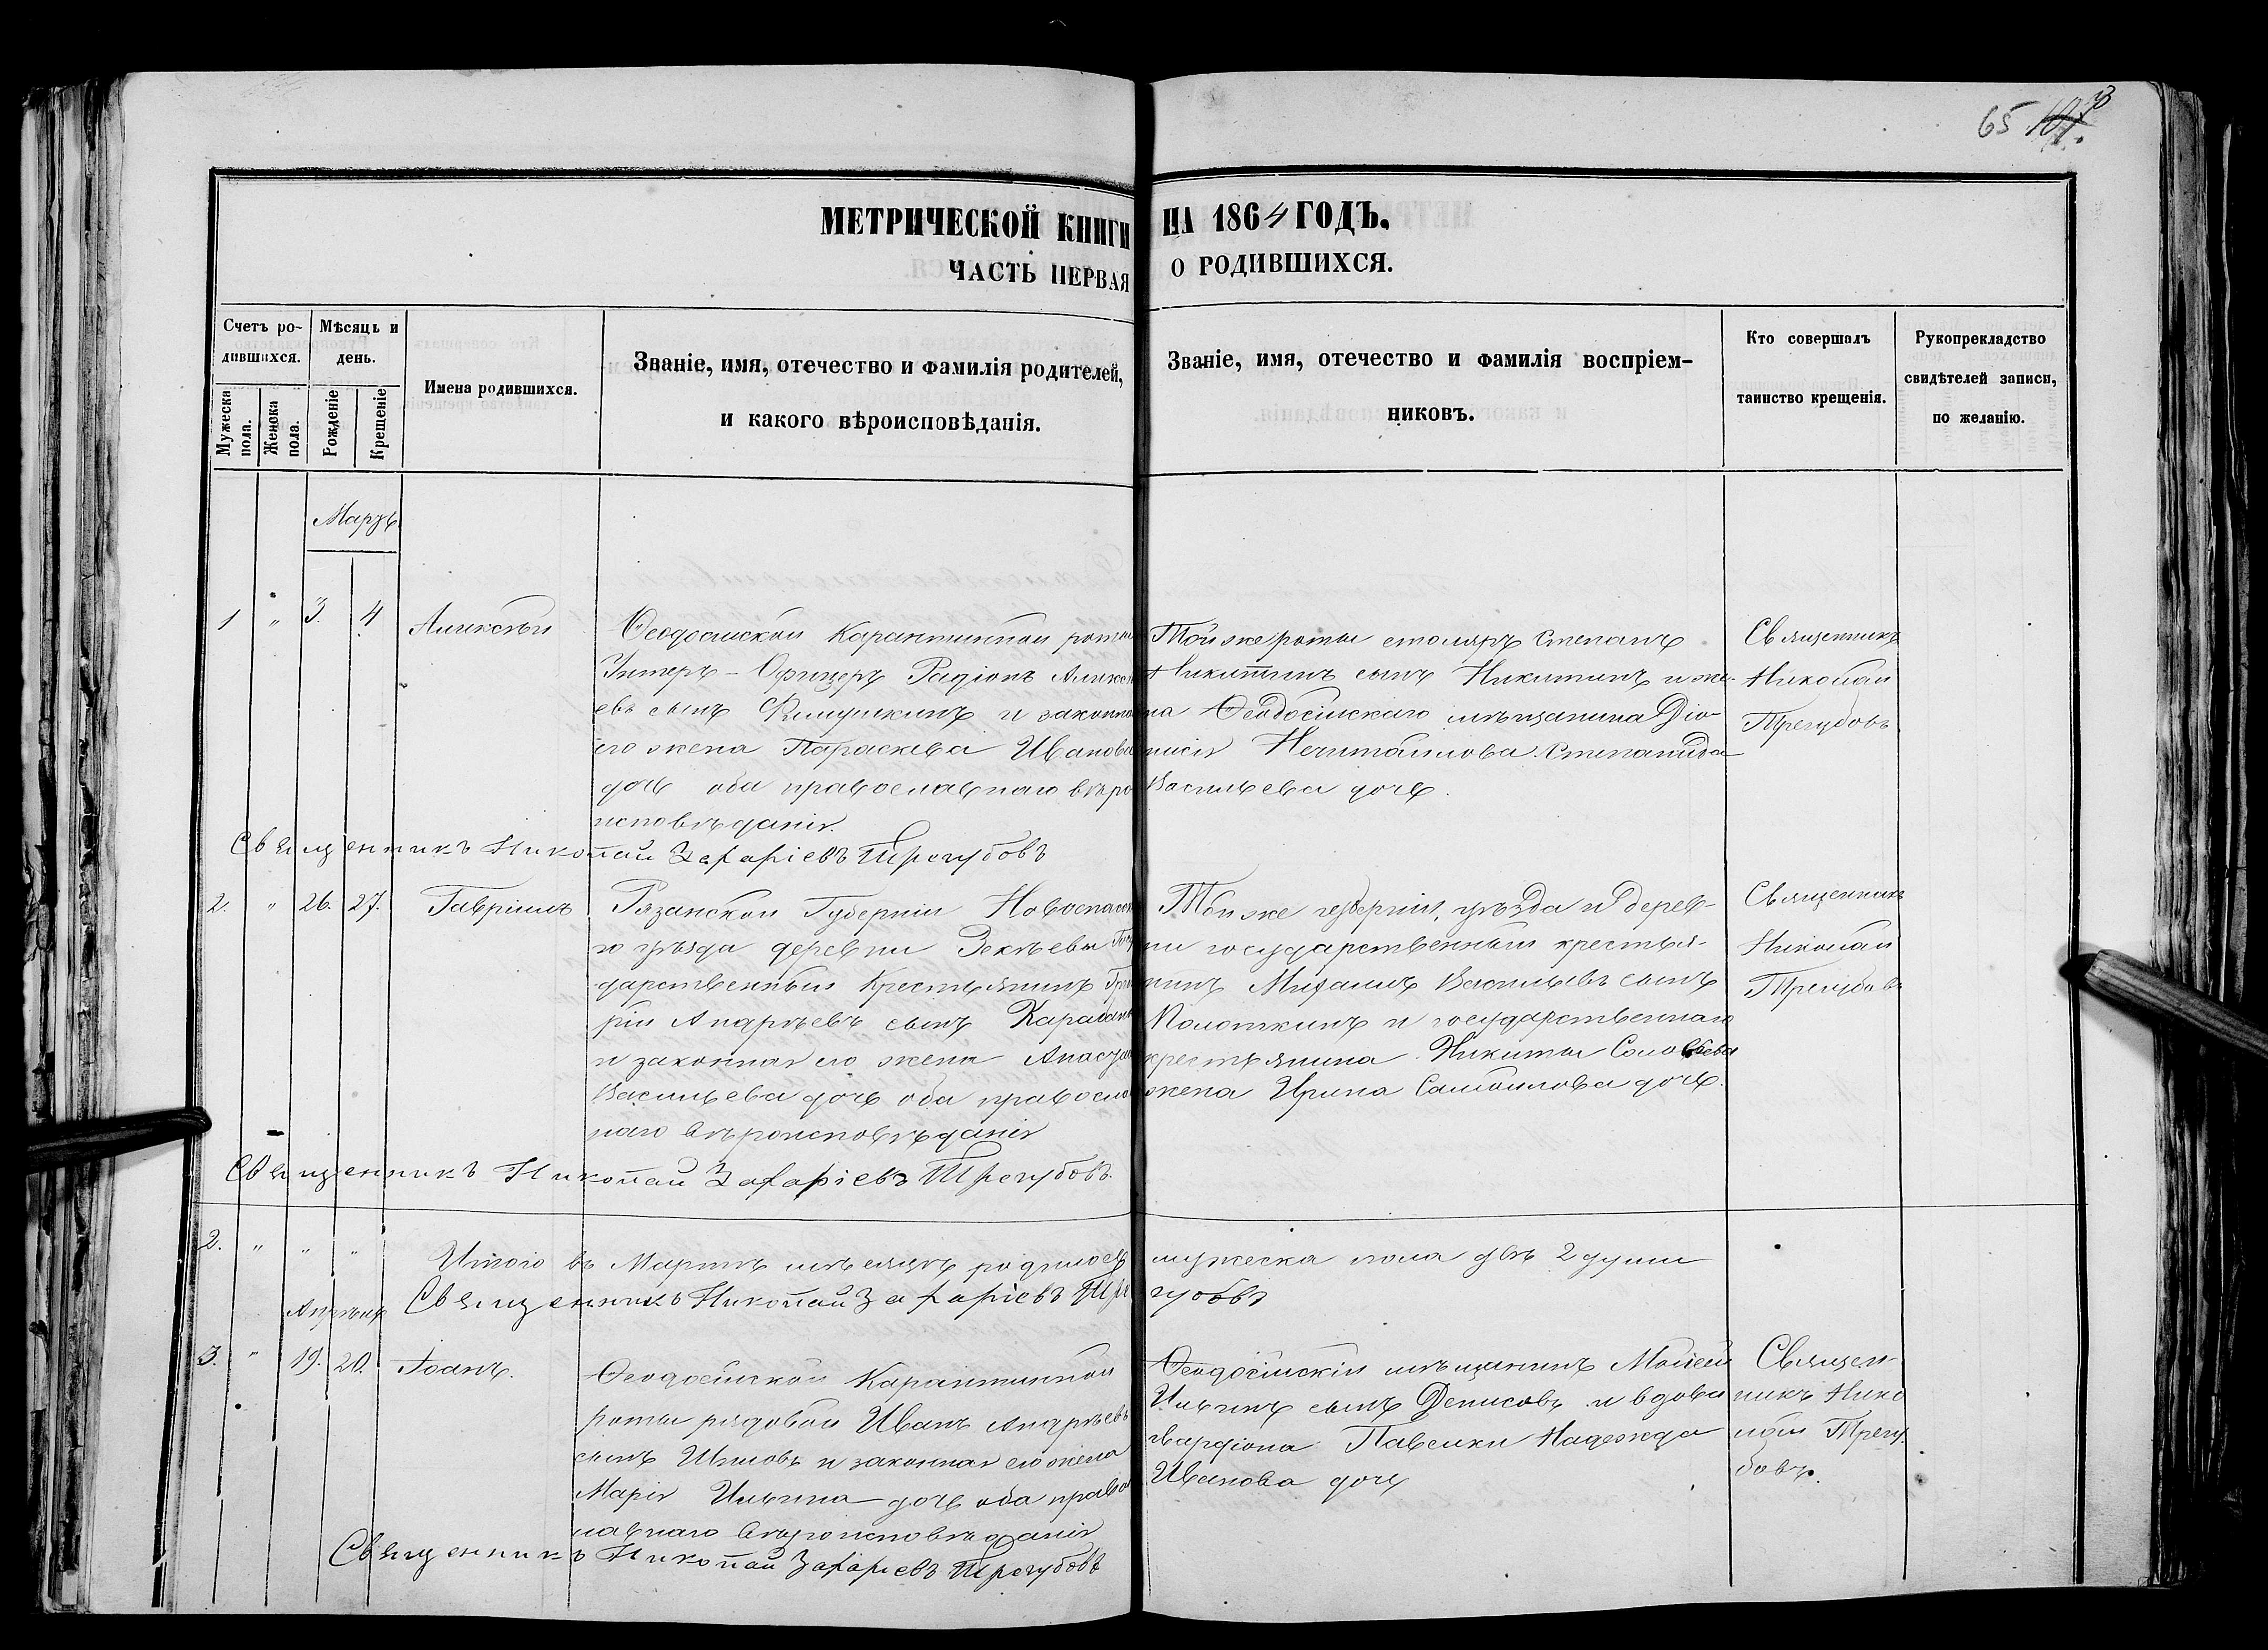 65
МЕТРИЧЕСКОЙ КНИГИ НА 1864 ГОДЪ.
ЧАСТЬ ПЕРВАЯ О РОДИВШИХСЯ.
Счетъ родившихся.
Мужеска пола.
Женска пола.
Мѣсяць и день.
Рожденіе
Крещеніе
Имена родившихся.
Званіе, имя, отечество и фамилія родителей,
и какого вѣроисповѣданія.
Званіе, имя, отечество и фамилія воспріем-
никовъ.
Кто совершалъ
таинство крещенія.
Рукопрекладство
свидѣтелей записи,
по желанію.
Мартъ
1 " 3. 4 Алексѣй
Ѳеодосійской Карантинной роты
Унтеръ-Офицеръ Радіонъ Алексѣ
евъ сынъ и законная
его жена Параскева Иванова
дочь оба православнаго вѣро
исповѣданія.
Той же роты столяръ Степанъ
Никитинъ сынъ Никитинъ и же-
на Ѳеодосійскаго мѣщанина Діо-
нисія Степанида
Васильева дочь.
Священникъ
Николай
Трегубовъ
Священникъ Николай Захаріевъ Трегубовъ
2. " 26. 27. Гавріилъ
Рязанской Губерніи
го уѣзда деревни Госу
дарственный Крестьянинъ Григо
рій Андрѣевъ сынъ
и законная его жена Анастасія
Васильева дочь оба правосла
наго вѣроисповѣданія
Той же губерніи, уѣзда и дерев-
ни государственный крестья-
нинъ Михаилъ Васильевъ сынъ
Полоткинъ и государственнаго
крестьянина Никиты Соловьева
жена Ирина Самойлова дочь.
Священникъ
Николай
Трегубовъ
Священникъ Николай Захаріевъ Трегубовъ.
2. " " " Итого въ Мартѣ мѣсяцѣ родилось мужеска пола двѣ 2 души
Священникъ Николай Захаріевъ Трегубовъ
Апрѣль
3. " 19. 20. Іоанъ.
Ѳеодосійской Карантинной
роты рядовой Иванъ Андрѣевъ
сынъ и законная его жена
Марія Ильина дочь оба право
славнаго вѣроисповѣданія
Ѳеодосійскій мѣщанинъ Моисей
Ильинъ сынъ Денисовъ и вдова
Надежда
Иванова дочь
Священ-
никъ Нико
лай Трегу-
бовъ.
Священникъ Николай Захаріевъ Трегубовъ